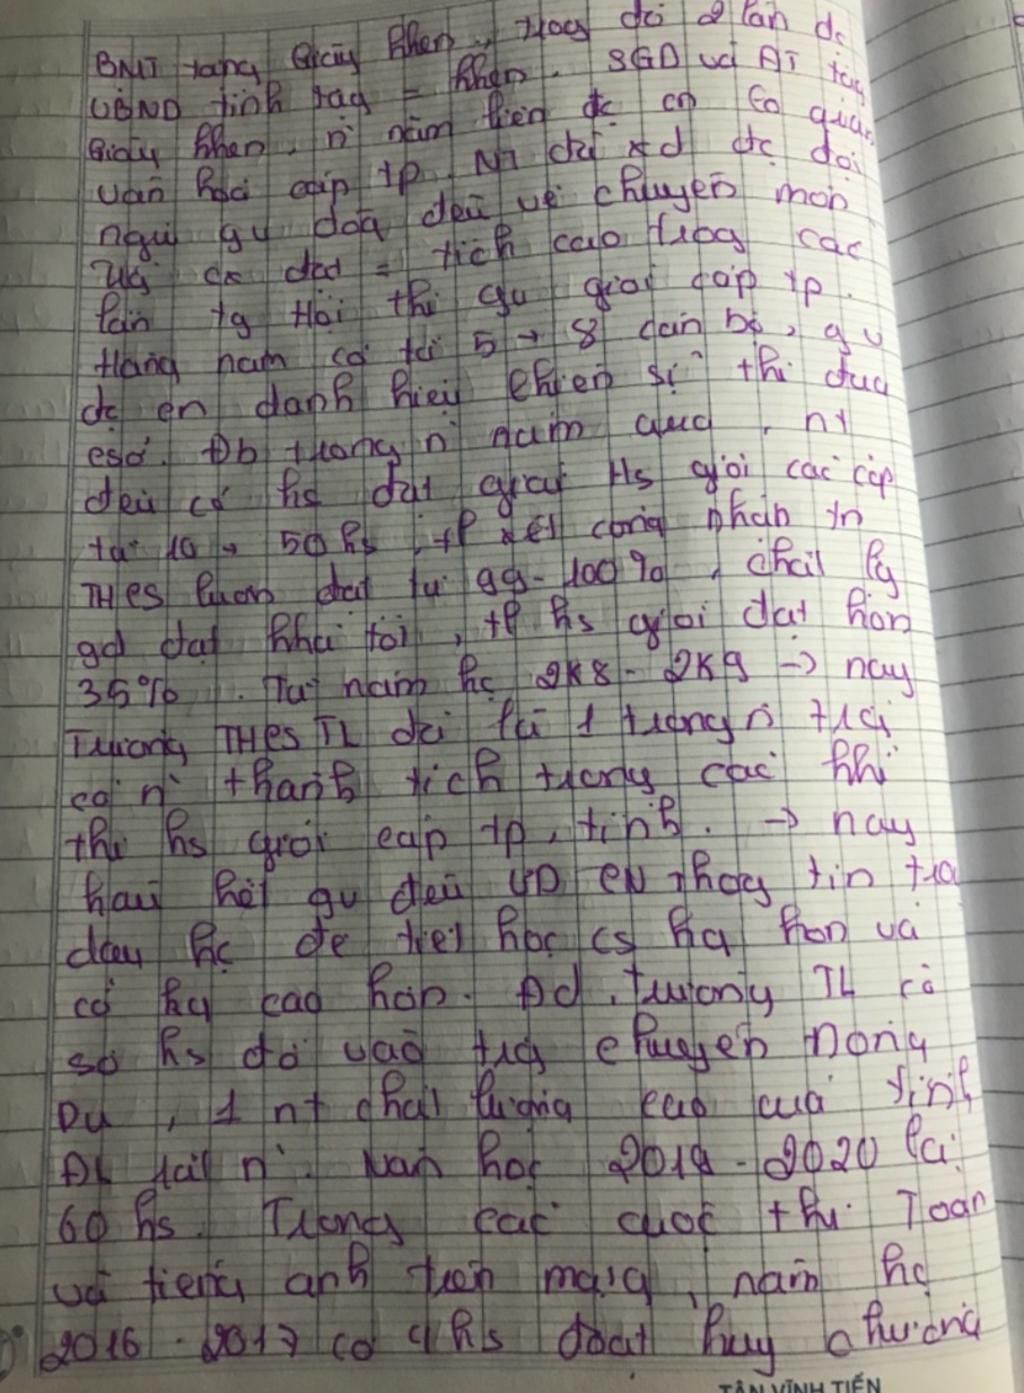 BNT tặng Giấy khen, trog đó 2 lần dc
UBND tỉnh tặg = khen. SGD và ĐT tặg
Giấy khen, n' năm liền đc cn cơ quan
văn hoá cấp tp. NT chỉ xd đc đội
ngũ gv đoà đều về chuyên môn
tích cao trog các
lần tg Hội thi gv giỏi cấp tp.
Hàng năm có từ 5 → 8 cán bộ, gv
đc cn danh hiệu chiến sĩ thi đua
csở. Đb trong n' năm qua, nt
đều có hs đạt giải Hs giỏi các cấp
từ 10 → 50 hs, tl xét công nhận tn
THCS luôn đạt từ 99-100%, chất lg
gd đạt khá tốt, tl hs giỏi đạt hơn
35%. Từ năm hc 2K8 - 2K9 → nay
Trường THCS TL đã là 1 trong n' trg
có n' thành tích trong các kì
thi hs giỏi cấp tp, tỉnh. → nay
hầu hết gv đều UD CN thôg tin tro
dạy hc để tiết học cs hq hơn và
có hq cao hơn. Đđ, trường TL có
số hs đỗ vào trg chuyên Nong
Du, 1 nt chất lượng cao của tỉnh
ĐL rất n'. Năm học 2019 - 2020 là
60 hs. Trong các cuộc thi Toán
và tiếng anh trên mạng, năm hc
2016 - 2017 có 4 hs đoạt huy chương
TÂN VĨNH TIẾN